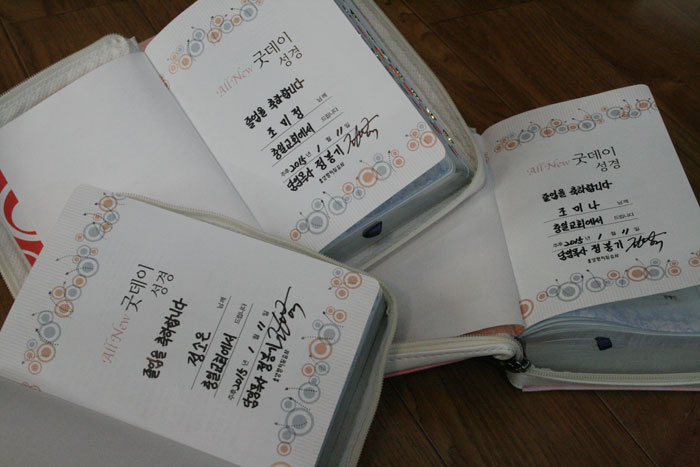 All New 굿데이
성경
졸업을 축하합니다
조미정 님께
충일교회에서 드립니다
주후 2015년 1월 11일
담임목사 정봉기
All New 굿데이
성경
졸업을 축하합니다
조미나 님께
충일교회에서 드립니다
주후 2015년 1월 11일
담임목사 정봉기
All New 굿데이
성경
졸업을 축하합니다
정소은 님께
충일교회에서 드립니다
주후 2015년 1월 11일
담임목사 정봉기